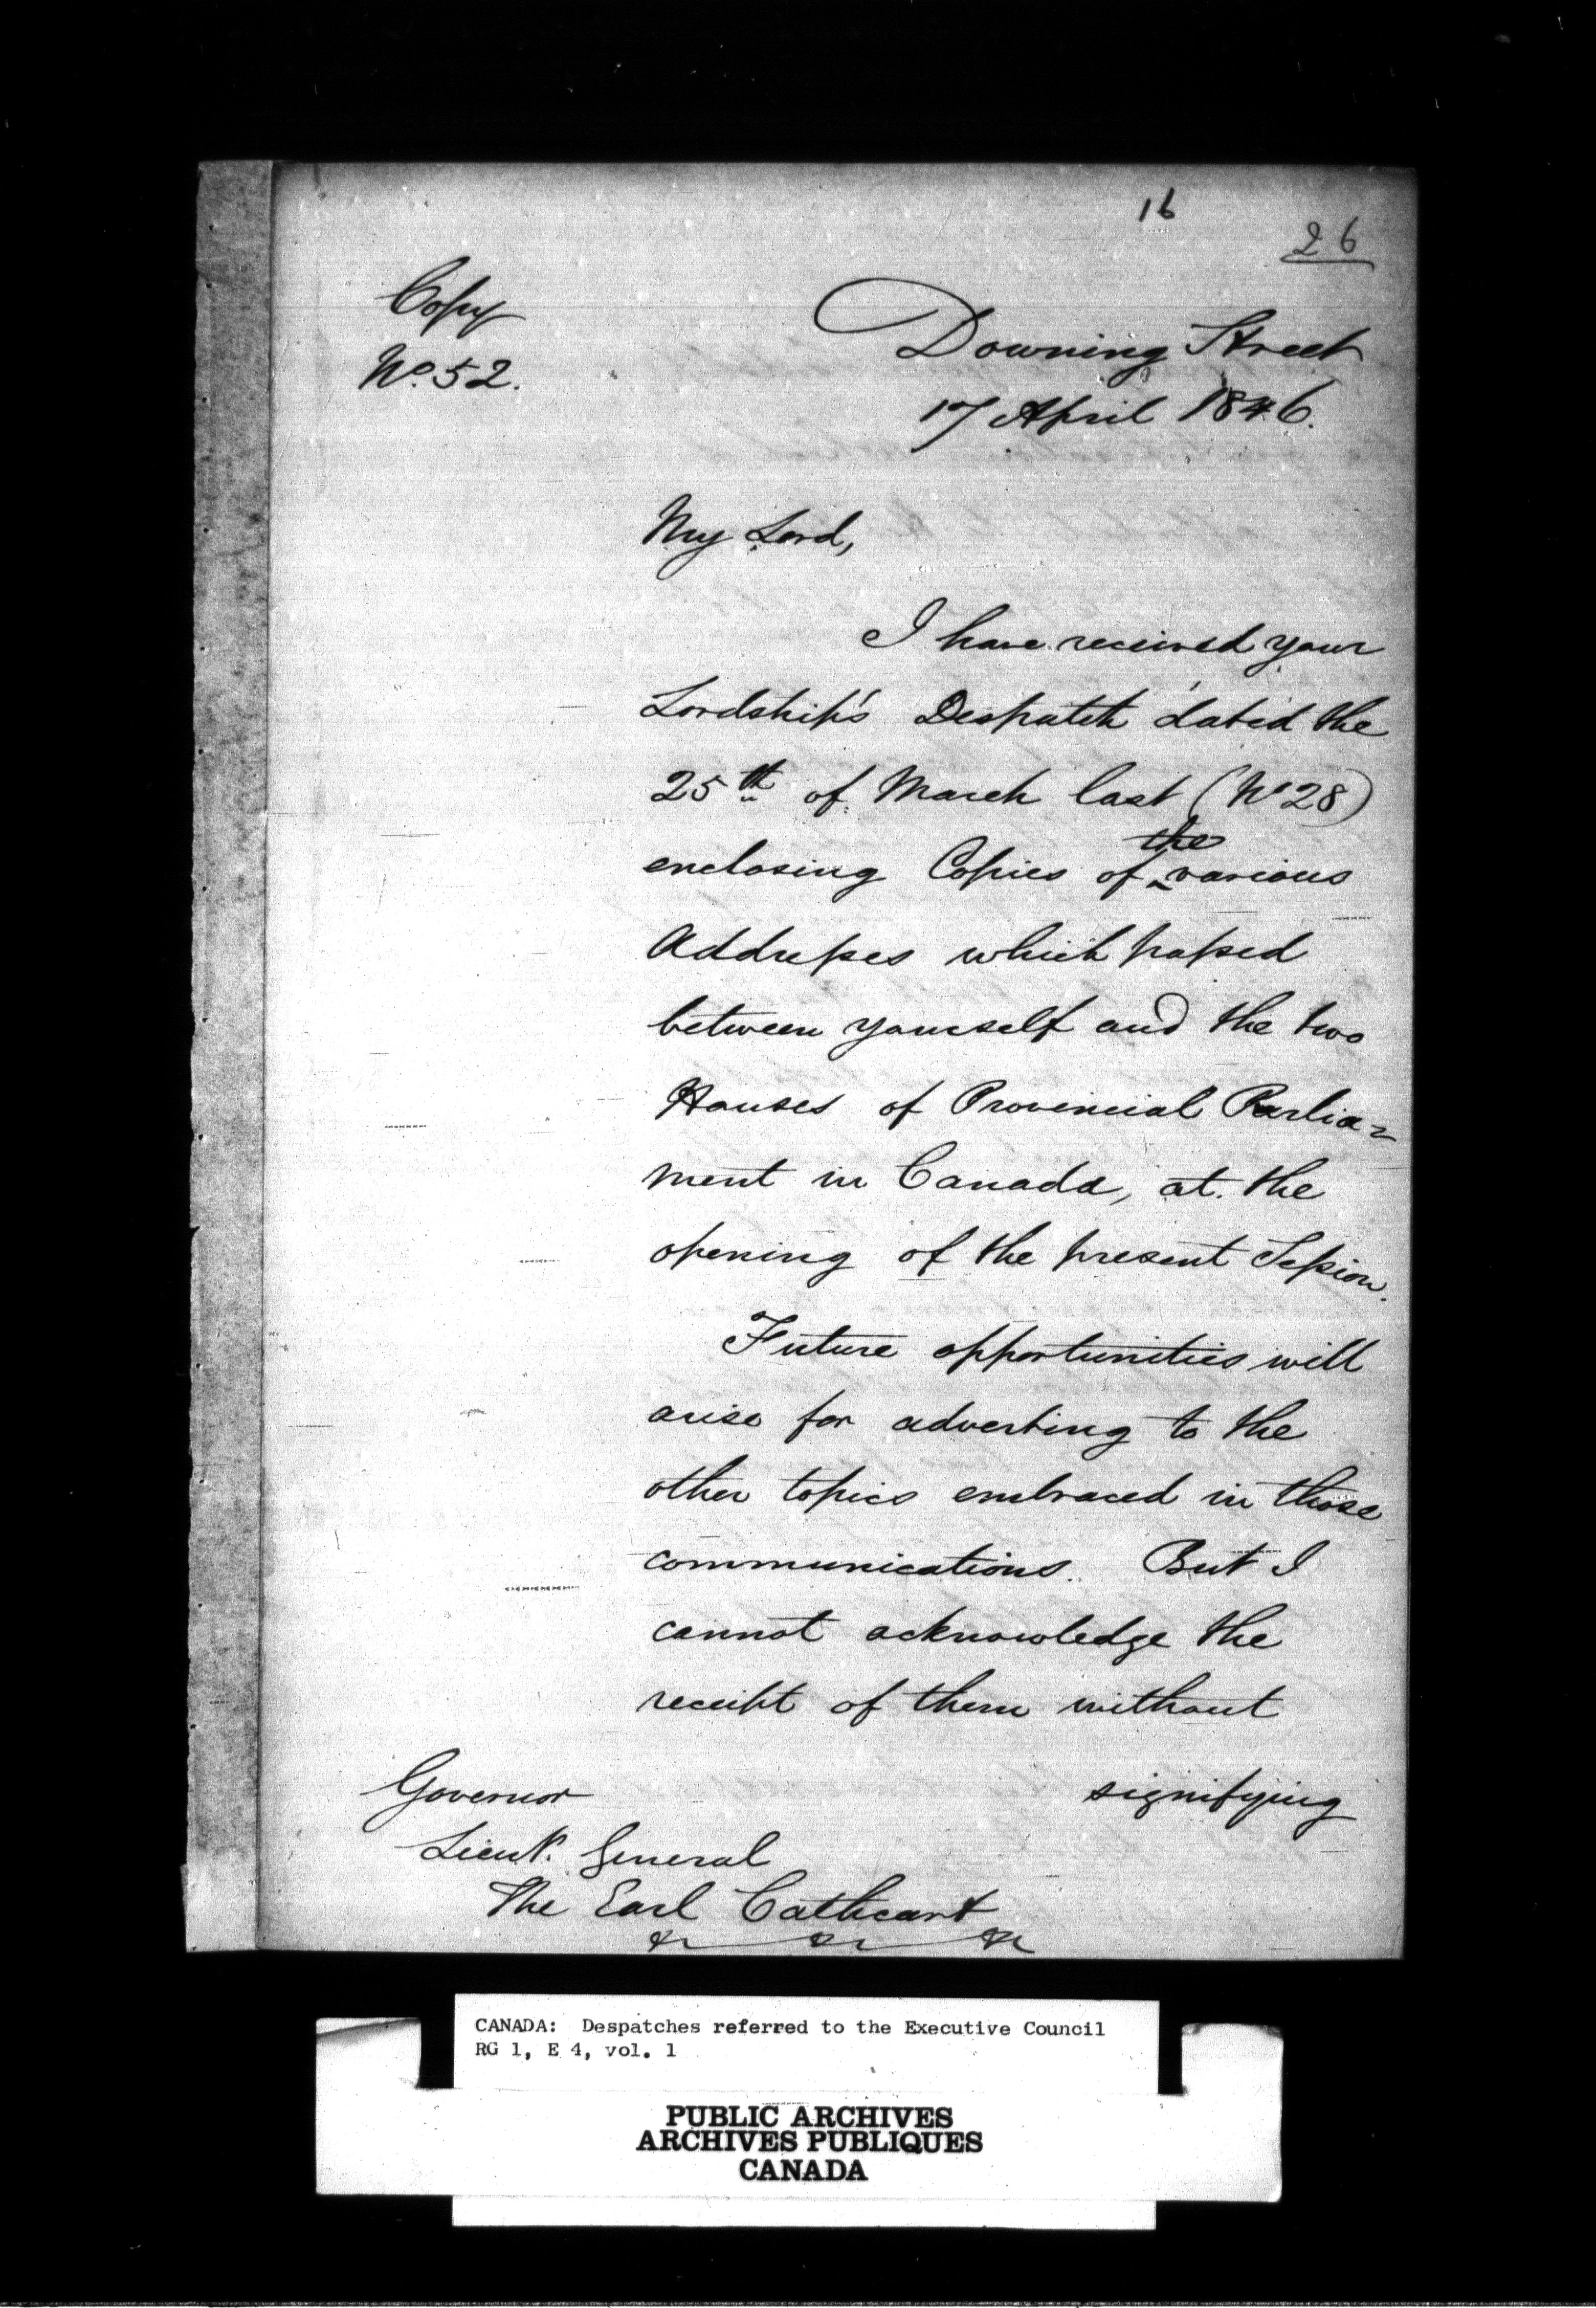 16
26
Copy
No. 52.
Downing Street
17 April 1846.
My Lord,
I have received your
Lordship's Despatch dated the
25th of March last (No 28)
enclosing Copies of the various
Addresses which passed
between yourself and the two
Houses of Provincial Parlia=
ment in Canada, at the
opening of the present Session.
Future opportunities will
arise for adverting to the
other topics embraced in those
communications. But I
cannot acknowledge the
receipt of them without
signifying
Governor
Lieut. General
The Earl Cathcart
CANADA: Despatches referred to the Executive Council
RG 1, E 4, vol. 1
PUBLIC ARCHIVES
ARCHIVES PUBLIQUES
CANADA